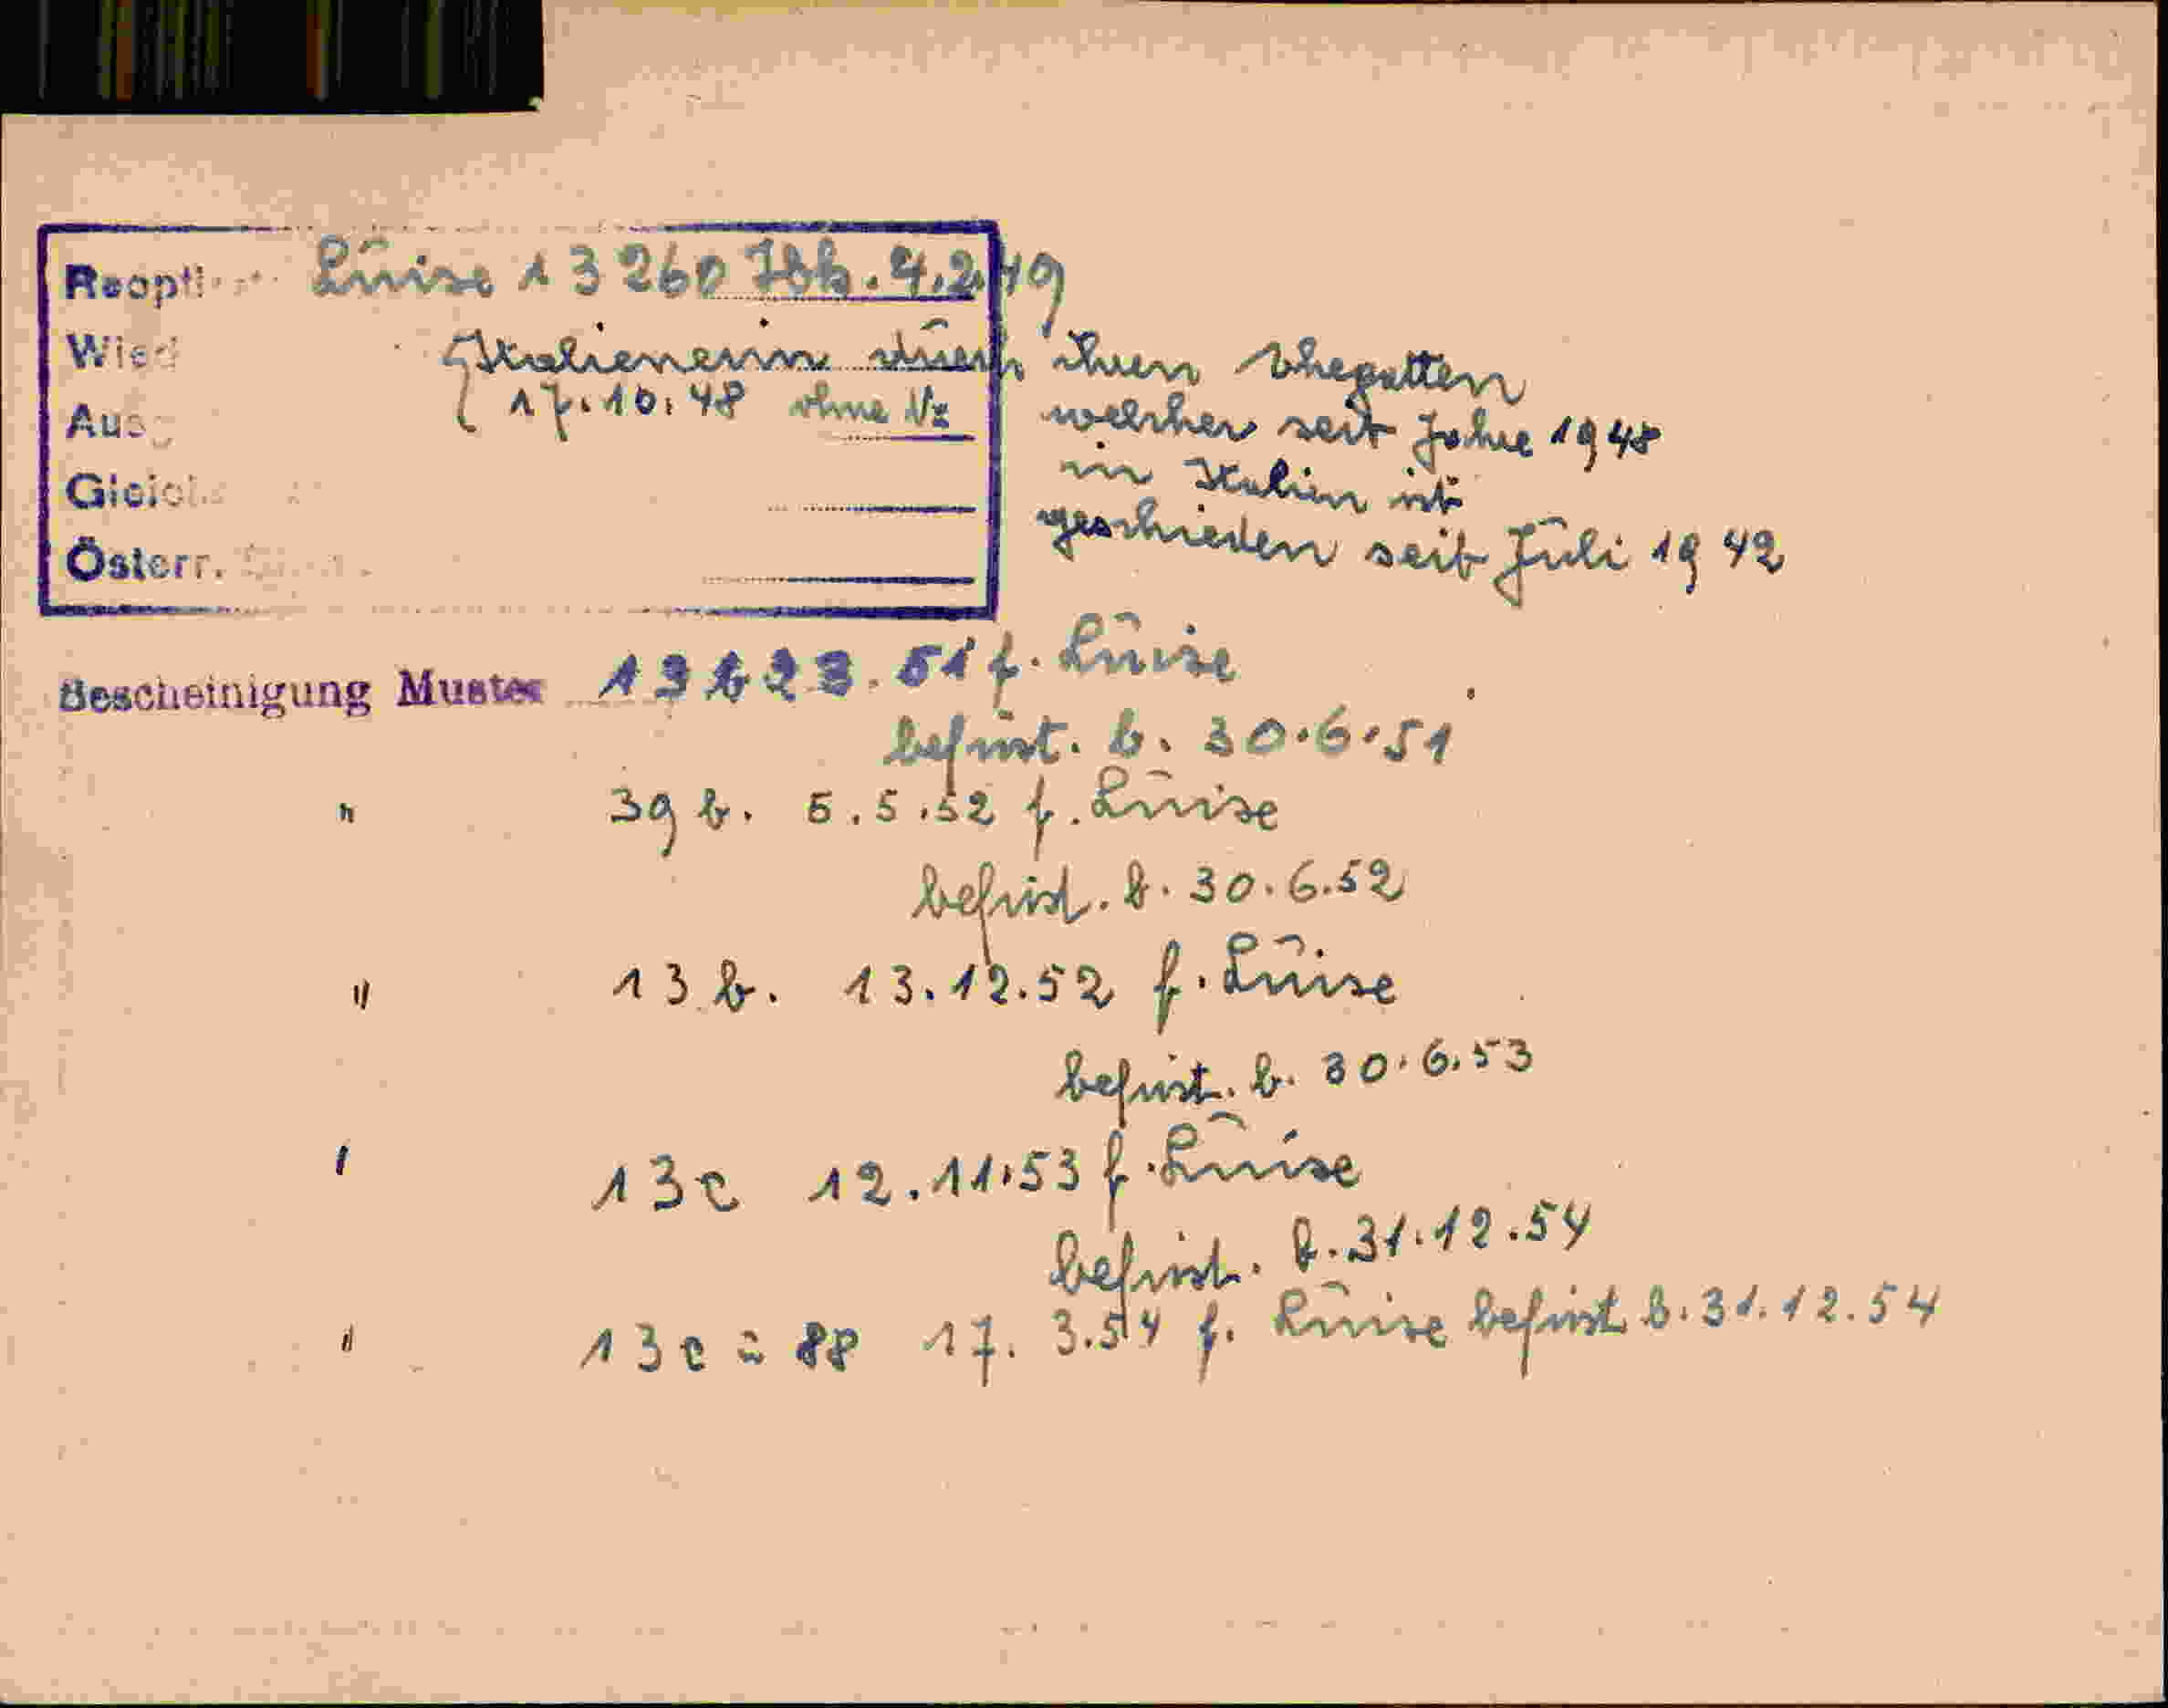 Reopti Luise 13 260 Ibk. 4.2.49
Wied {Italienerin durch ihren Ehegatten
Ausg 17.10.48 ohne Nz welcher seit Jahre 1948
Gleich in Italien ist
Österr. geschieden seit Juli 1942
Bescheinigung Muster 51 f. Luise
befrist. b. 30.6.51
" 39 b. 5.5.52 f. Luise
befrist. b. 30.6.52
" 13 b. 13.12.52 f. Luise
befrist. b. 30.6.53
" 13c 12.11.53 f. Luise
befrist. b. 31.12.54
" 13c = 88 17.3.54 f. Luise befrist b. 31.12.54